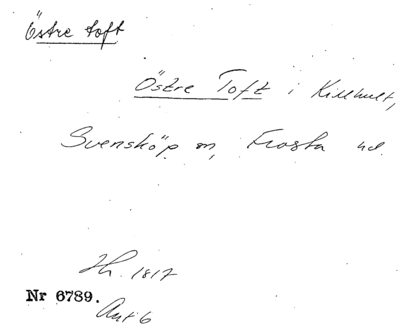 Östre toft
Östre Toft i Killhult,
Svensköp sn, Frosta hd.
Hh. 1817
Nr 6789.
Akt 6